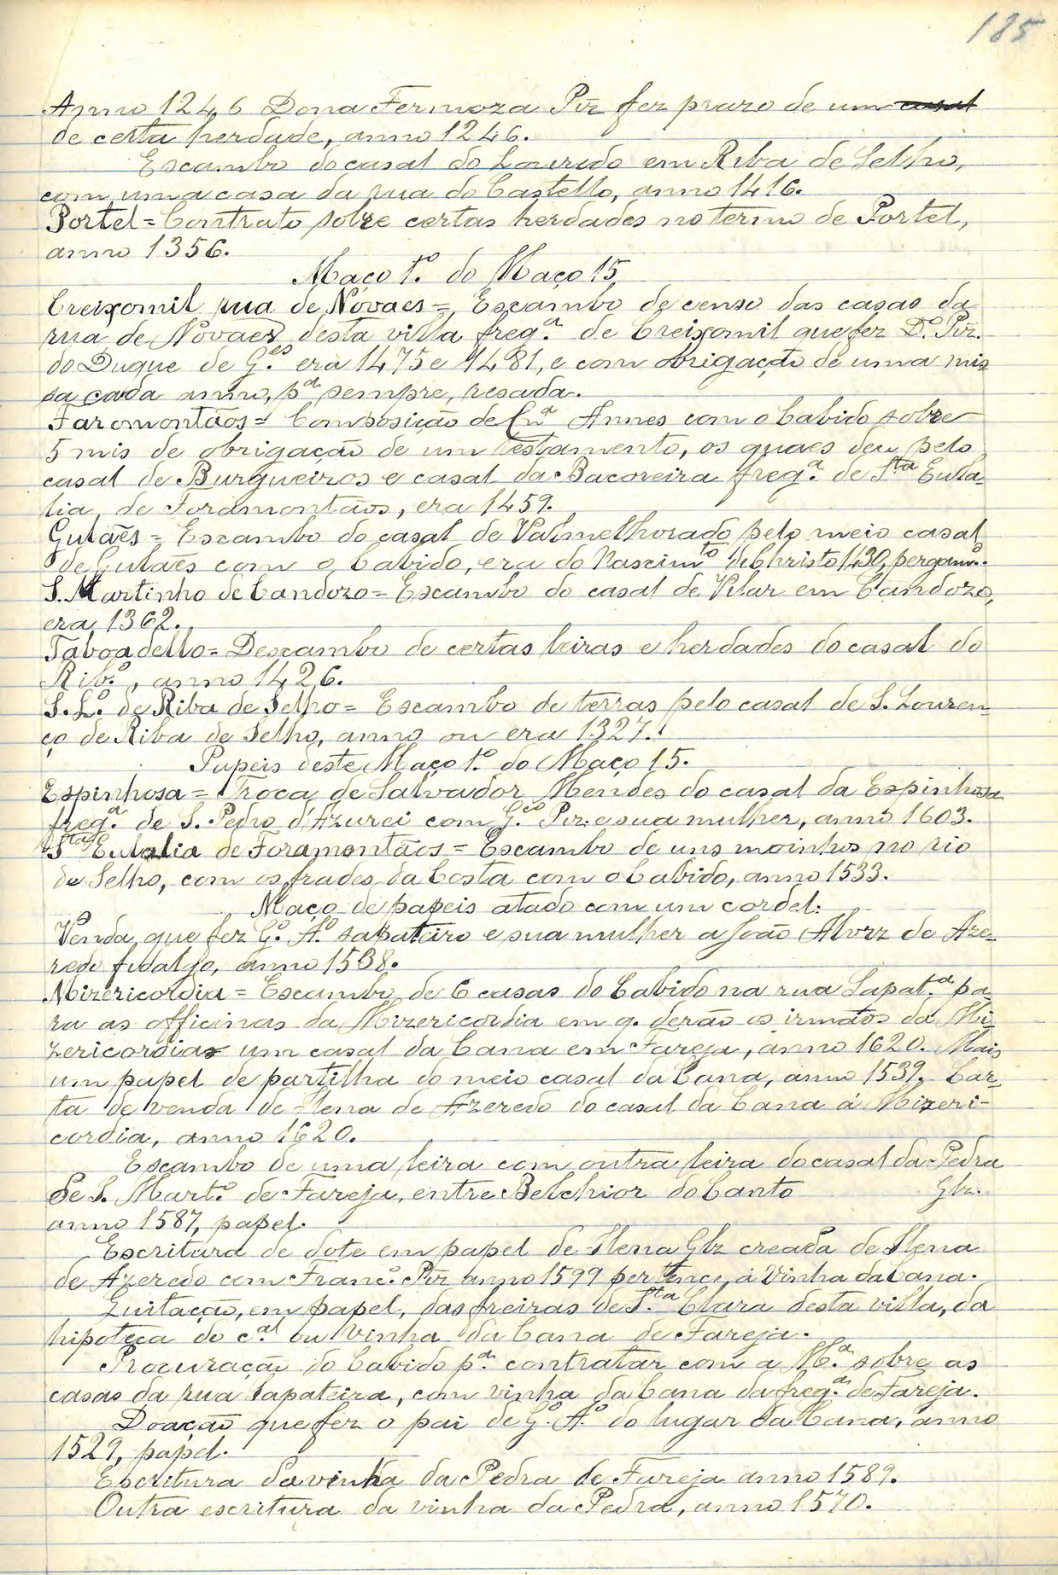 185
Anno 1246 Dona Fermoza Piz fez prazo de um casal
de certa herdade, anno 1246.
Escambo do casal do Louredo em Riba de Selho,
com uma casa da rua do Castello, anno 1416.
Portel = Contrato sobre certas herdades no termo de Portel,
anno 1356.
Maço 1.º do Maço 15
Creixomil rua de Novaes = Escambo de censo das casas da
rua de Novaes desta villa freg.ª de Creixomil que fez D.º Piz.
do Duque de G.es era 1475 e 1481, e com obrigação de uma mis
sa cada anno, p.ª sempre, resada.
Faromontãos = Composição de Annes com o Cabido sobre
5 mis de obrigação de um testamento, os quaes deu pelo
casal de Burgueiros e casal da Bacoreira freg.ª de S.ta Eula-
lia de Foramontãos, era 1459.
Gulães = Escambo do casal de Valmelhorado pelo meio casal
de Gulães com o Cabido, era do Nascim.to de Christo 1430, pergam.º
S. Martinho de Candozo = Escambo do casal de Vilar em Candozo,
era 1362.
Taboadello = Descambo de certas leiras e herdades do casal do
Rib.º, anno 1426.
S. L.º de Riba de Selho = Escambo de terras pelo casal de S. Louren-
ço de Riba de Selho, anno ou era 1327.
Papeis deste Maço 1.º do Maço 15.
Espinhosa = Troca de Salvador Mendes do casal da Espinhosa
freg.ª de S. Pedro d'Azurei com G.º Piz. e sua mulher, anno 1603.
S.ta Eulalia de Foramontãos = Escambo de uns moinhos no rio
de Selho, com os frades da Costa com o Cabido, anno 1533.
Maço de papeis atado com um cordel:
Venda que fez G.º A.º sapateiro e sua mulher a João Alvrz de Aze-
redo fidalgo, anno 1538.
Mizericordia = Escambo de 6 casas do Cabido na rua Sapat.ª pa-
ra as officinas da Mizericordia em q. derão os irmãos da Mi-
zericordia um casal da Cana em Fareja, anno 1620. Mais
um papel de partilha do meio casal da Cana, anno 1539, Car-
ta de venda de Ilena de Azeredo do casal da Cana á Mizeri-
cordia, anno 1620.
Escambo de uma leira com outra leira do casal da Pedra
de S. Mart.º de Fareja, entre Belchior do Canto Glz.
anno 1587, papel.
Escritura de dote em papel de Ilena Glz creada de Ilena
de Azeredo com Franc.º Piz anno 1599 pertence á Vinha da Cana.
Quitação, em papel, das freiras de S.ta Clara desta villa, da
hipoteca do c.al ou vinha da Cana de Fareja.
Procuração do Cabido p.ª contratar com a M.ª sobre as
casas da rua Çapateira, com vinha da Cana da freg.ª de Fareja.
Doação que fez o pai de G.º A.º do lugar da Cana, anno
1529, papel.
Escritura da vinha da Pedra de Fareja anno 1589.
Outra escritura da vinha da Pedra, anno 1570.